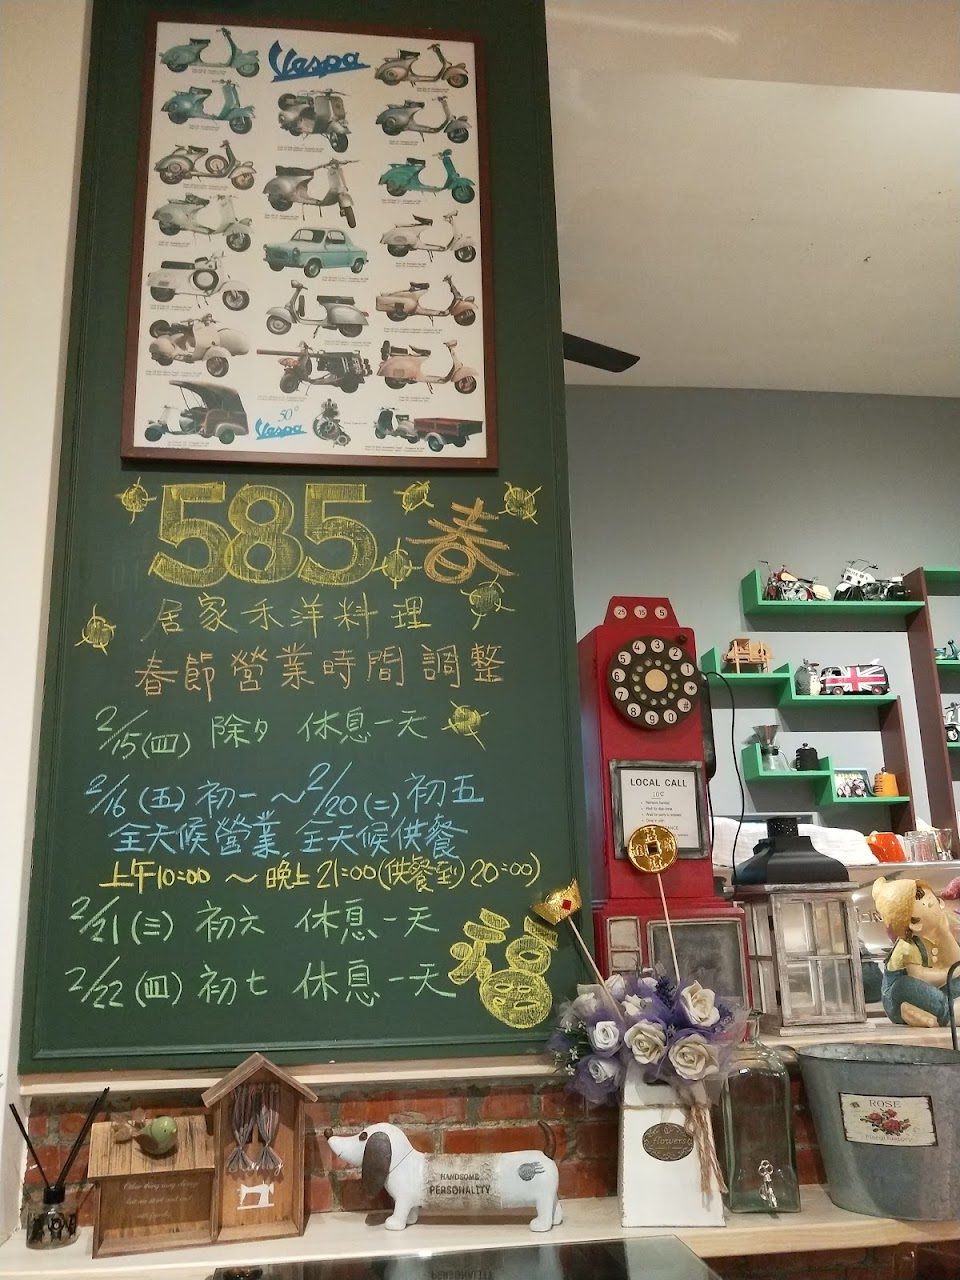 Vespa
50° Vespa
585.春
居家禾洋料理
春節營業時間調整
2/15(四) 除夕 休息一天
2/16(五)初一~2/20(二)初五
全天候營業.全天候供餐
上午10:00 ~ 晚上21:00(供餐到20:00)
2/21(三) 初六 休息一天
2/22(四) 初七 休息一天
福
25 15 5
LOCAL CALL
10¢
flowers
ROSE
HANDSOME
PERSONALITY